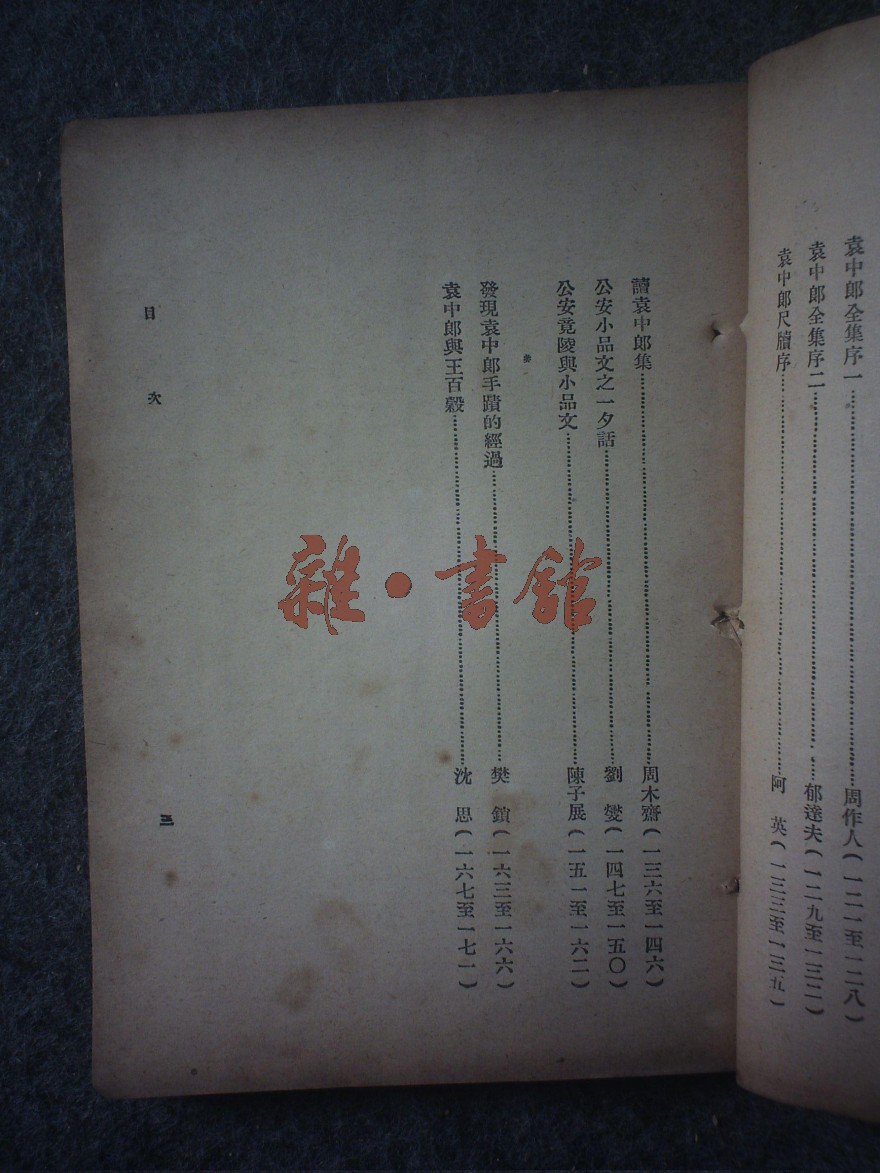 袁中郎全集序一……周作人(一二一至一二八)
袁中郎全集序二……郁達夫(一二九至一三二)
袁中郎尺牘序……阿英(一三三至一三五)
讀袁中郎集……周木齋(一三六至一四六)
公安小品文之一夕話……劉燮(一四七至一五〇)
公安竟陵與小品文……陳子展(一五一至一六二)
發現袁中郎手蹟的經過……樊鎮(一六三至一六六)
袁中郎與王百穀……沈思(一六七至一七一)
目次
三
雜·書館